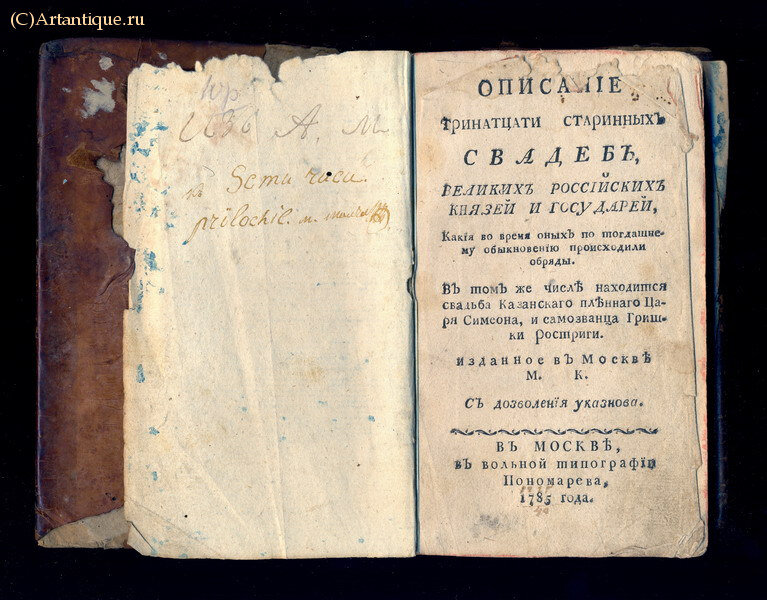 (C)Artantique.ru
А. М
ОПИСАНІЕ
ТРИНАТЦАТИ СТАРИННЫХЪ
СВАДЕБЪ,
ВЕЛИКИХЪ РОССІЙСКИХЪ
КНЯЗЕЙ И ГОСУДАРЕЙ,
Какія во время оныхъ по тогдашне-
му обыкновенію происходили
обряды.
Въ томъ же числѣ находится
свадьба Казанскаго плѣннаго Ца-
ря Симеона, и самозванца Гриш-
ки Ростриги.
изданное въ Москвѣ
М. К.
Съ дозволенія указнова.
ВЪ МОСКВѢ,
въ вольной типографіи
Пономарева,
1785 года.